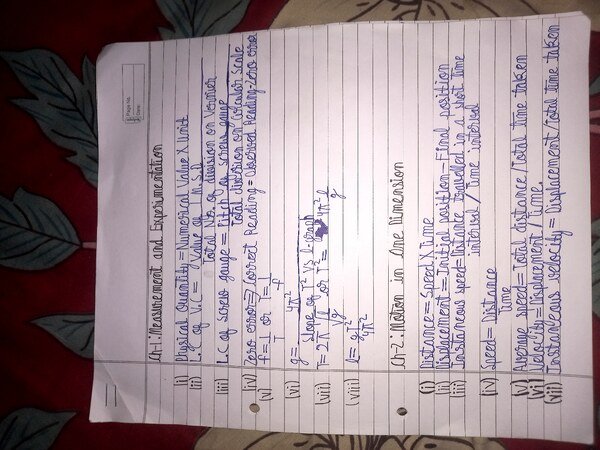 Page No.
Date
Ch-1: Measurement and Experimentation
(i) Physical Quantity = Numerical Value X Unit
(ii) L.C of V.C = Value of 1 M.S.D
Total No. of division on Vernier
(iii) L.C of screw gauge = Pitch of screw gauge
Total division on Circular Scale
(iv) Zero error ⇒ Correct Reading = Observed Reading - Zero error
(v) f = 1/T or T = 1/f
(vi) g = 4π²
Slope of T² Vs l-graph
(vii) T = 2π√l/g or T² = 4π² l/g
(viii) l = gT²/4π²
Ch-2: Motion in One Dimension
(i) Distance = Speed X Time
(ii) Displacement = Initial position - Final position
(iii) Instaneous speed = Distance travelled in a short time
interval / Time interval
(iv) Speed = Distance
Time
(v) Average speed = Total distance / Total time taken
(vi) Velocity = Displacement / Time.
(vii) Instaneous velocity = Displacement / total time taken